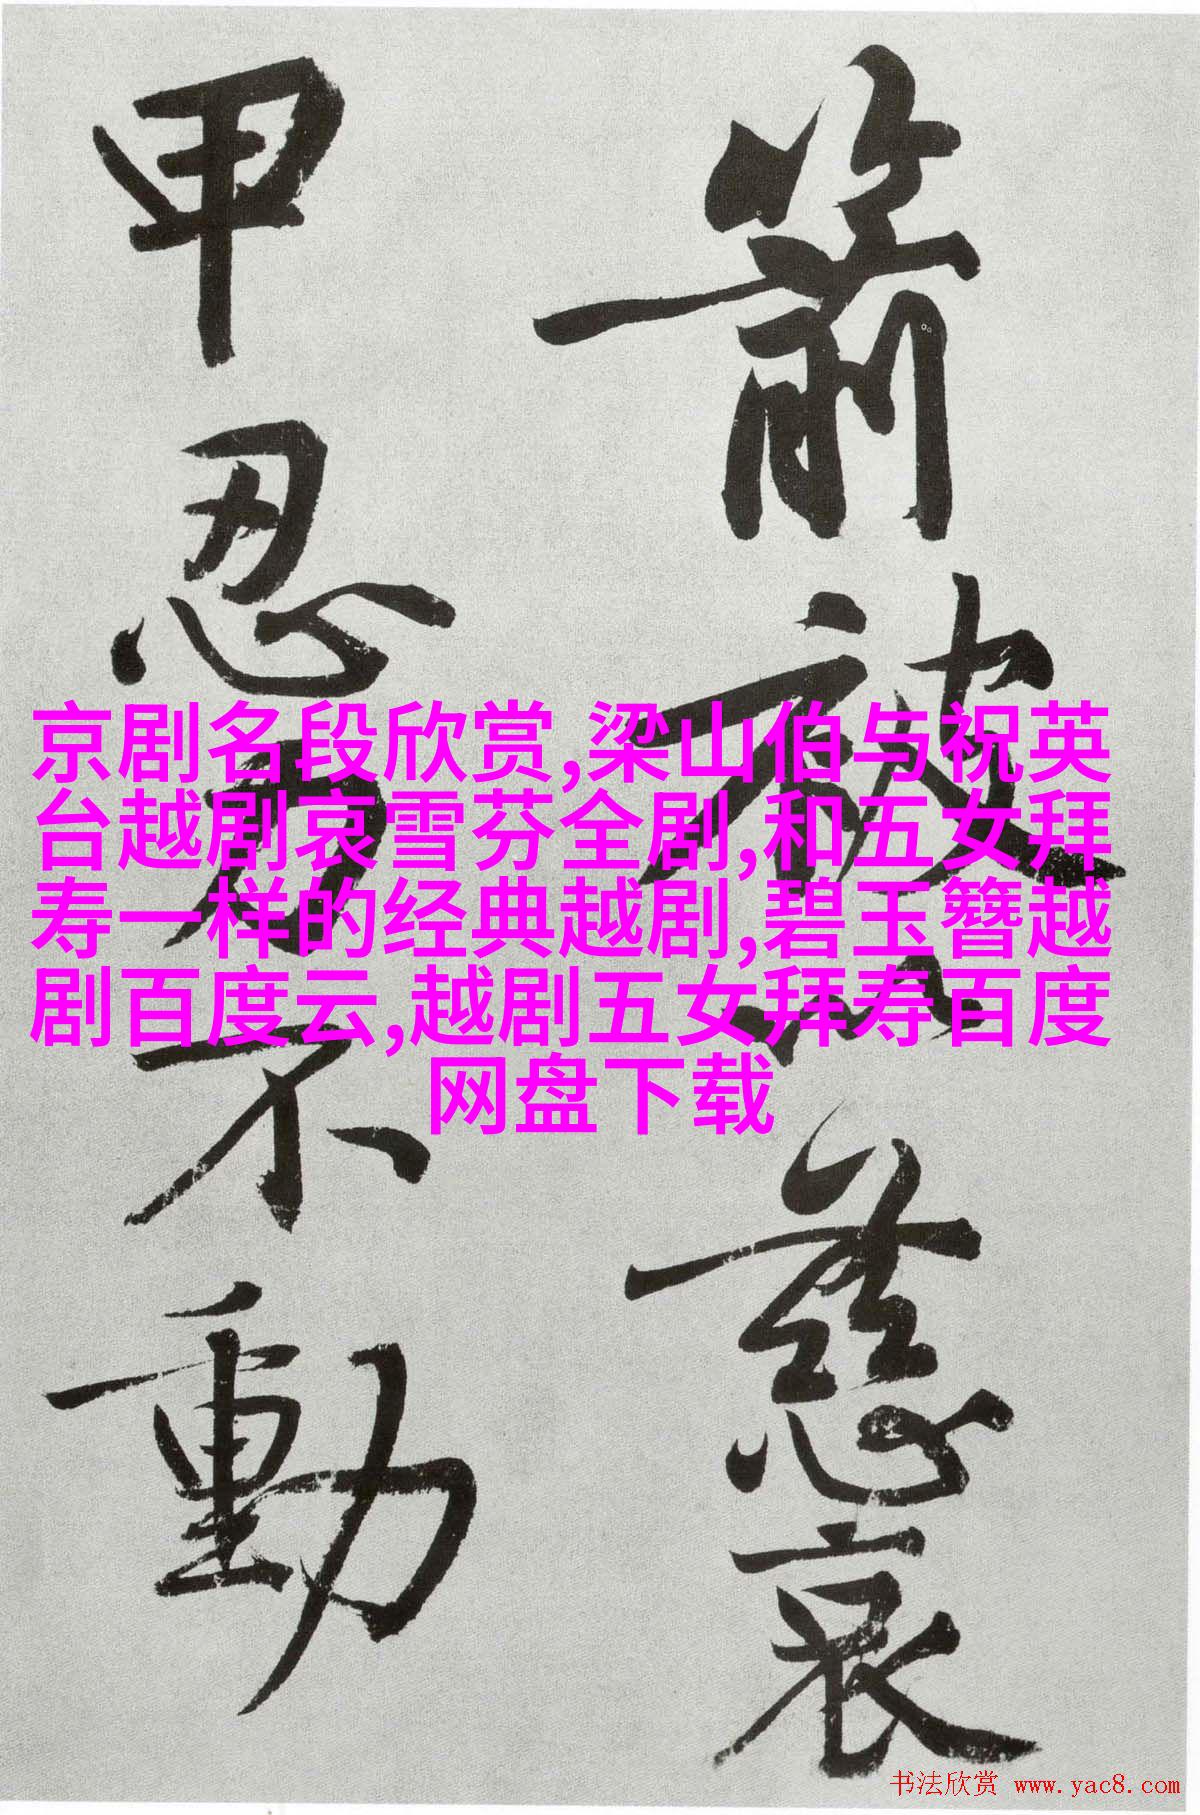 箭被慈哀
甲忍力不動
京剧名段欣赏,梁山伯与祝英
台越剧哀雪芬全剧,和五女拜
寿一样的经典越剧,碧玉簪越
剧百度云,越剧五女拜寿百度
网盘下载
书法欣赏 www.yac8.com